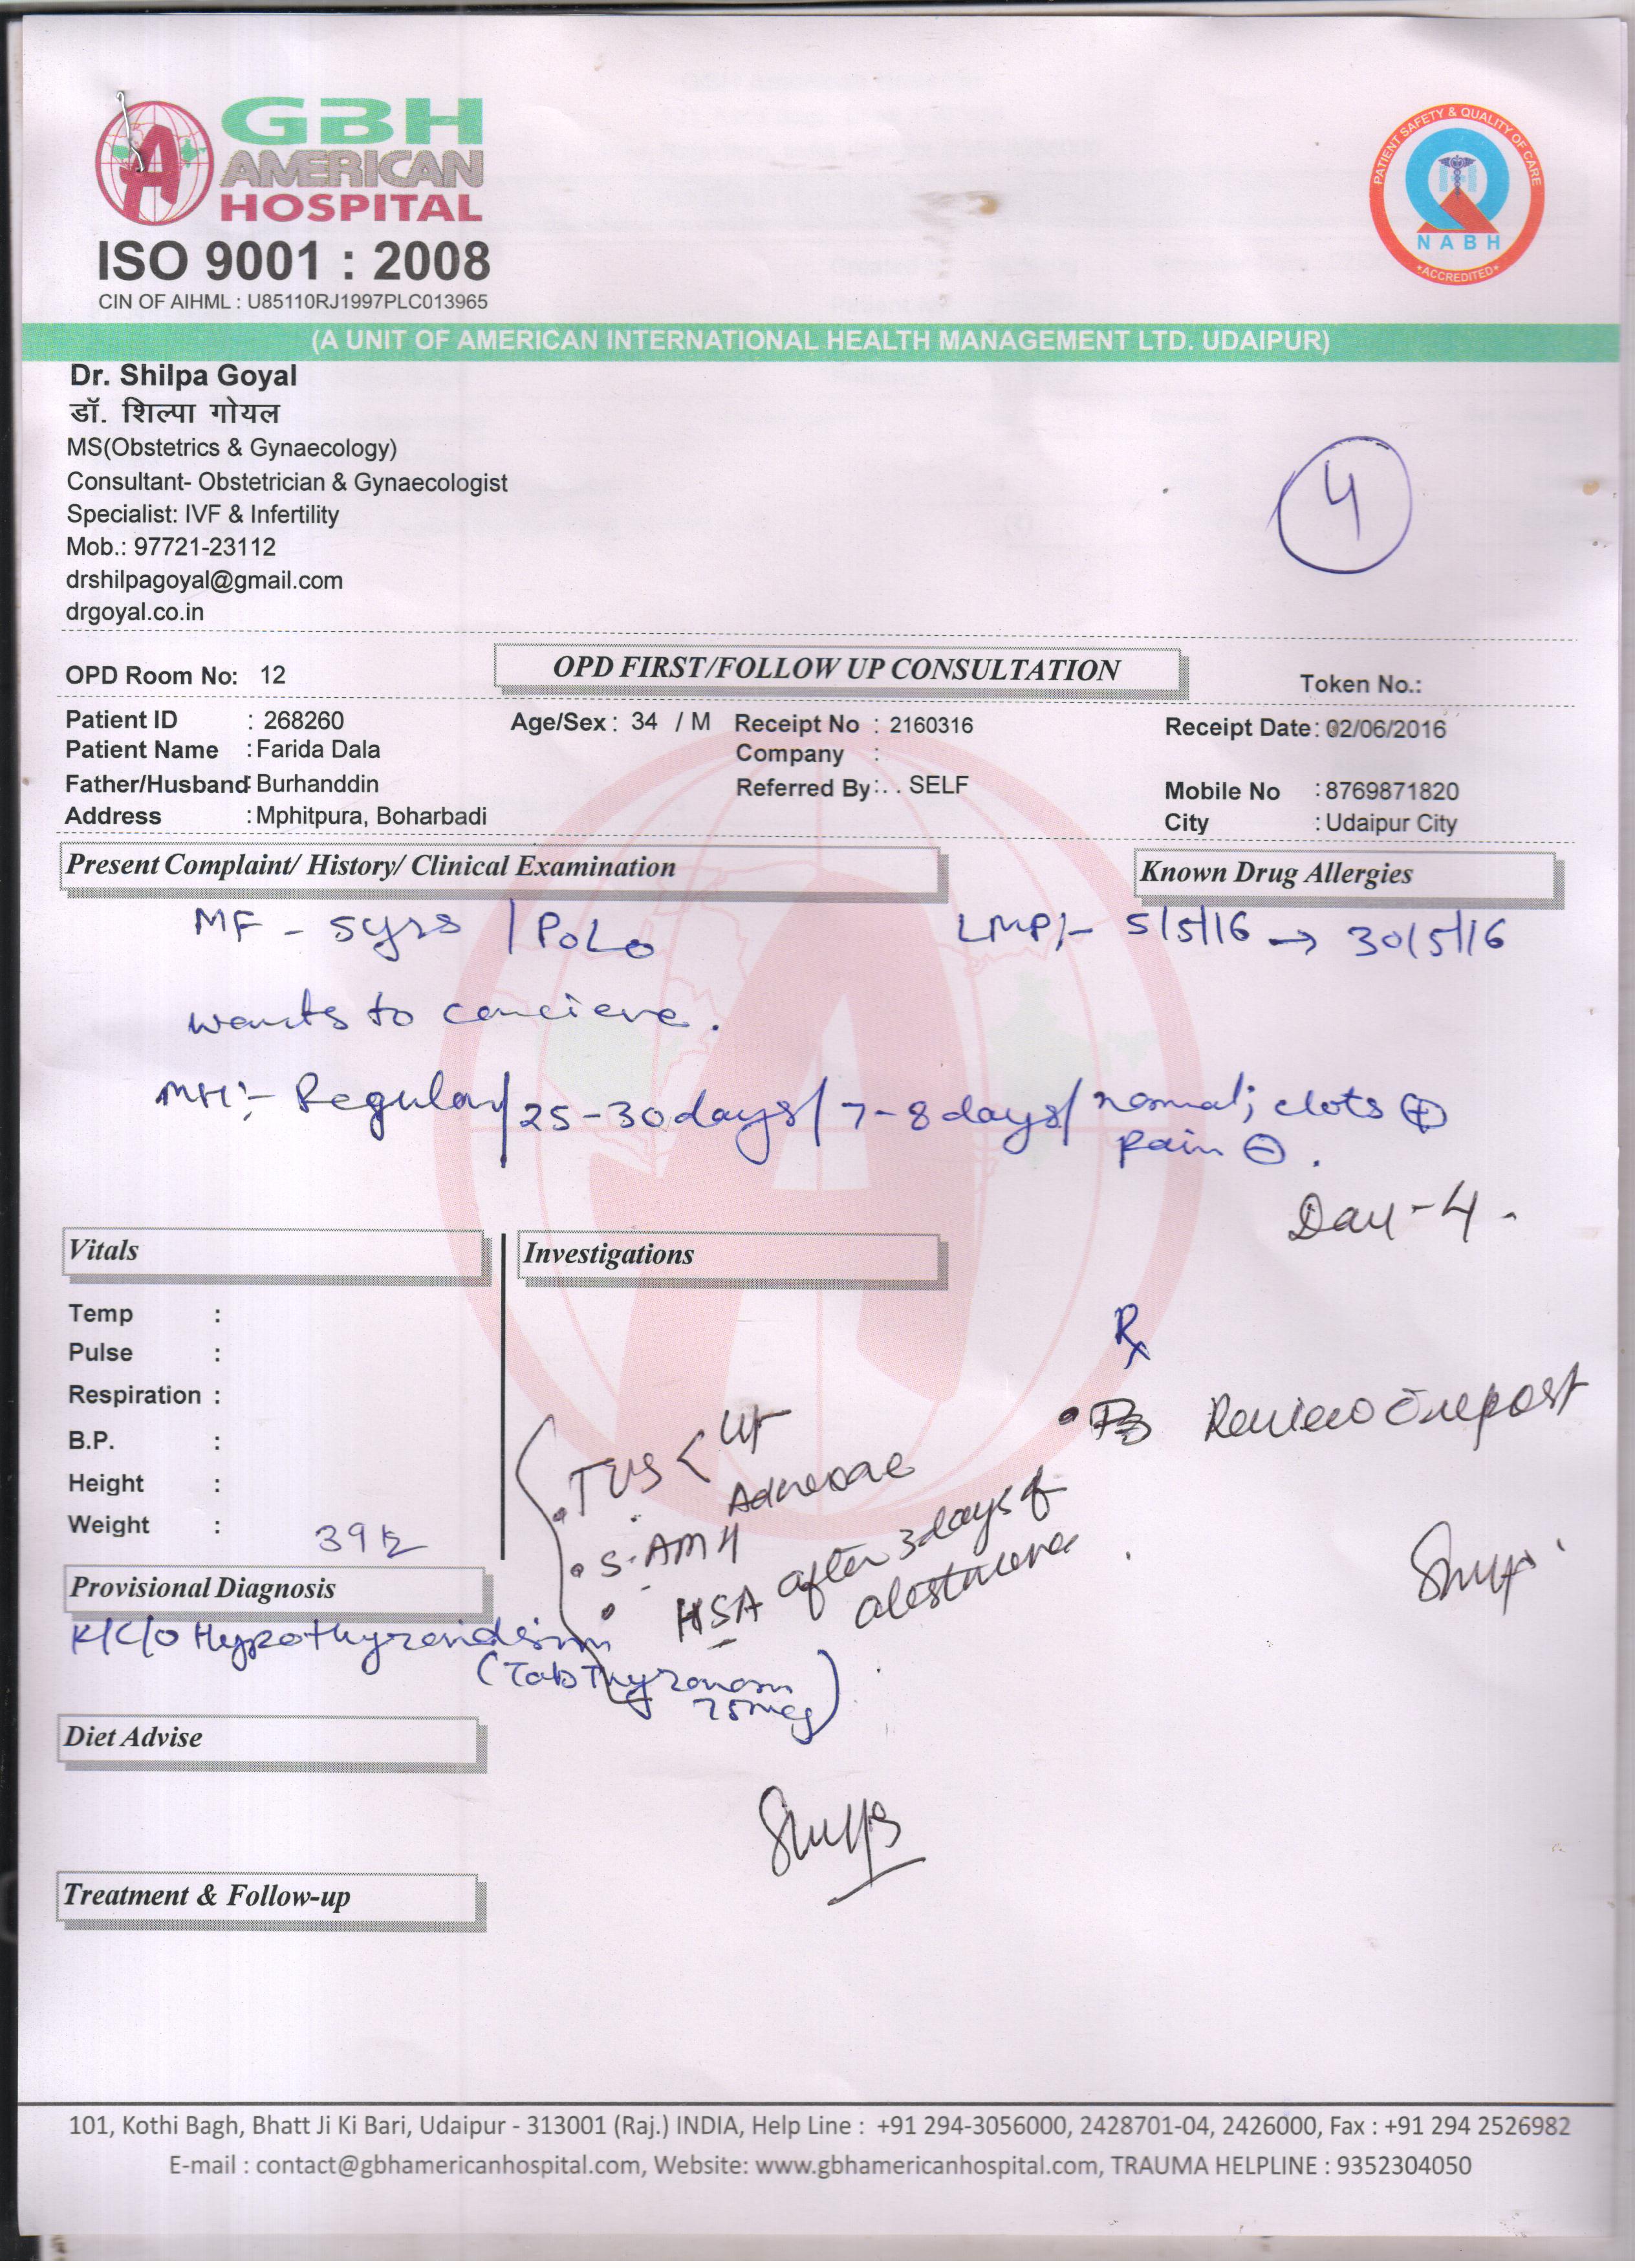 GBH
AMERICAN
HOSPITAL
ISO 9001 : 2008
CIN OF AIHML : U85110RJ1997PLC013965
PATIENT SAFETY & QUALITY OF CARE
NABH
ACCREDITED
(A UNIT OF AMERICAN INTERNATIONAL HEALTH MANAGEMENT LTD. UDAIPUR)
Dr. Shilpa Goyal
डॉ. शिल्पा गोयल
MS(Obstetrics & Gynaecology)
Consultant- Obstetrician & Gynaecologist
Specialist: IVF & Infertility
Mob.: 97721-23112
drshilpagoyal@gmail.com
drgoyal.co.in
4
OPD Room No: 12
OPD FIRST/FOLLOW UP CONSULTATION
Token No.:
Patient ID : 268260 Age/Sex : 34 / M Receipt No : 2160316 Receipt Date: 02/06/2016
Patient Name : Farida Dala Company :
Father/Husband: Burhanddin Referred By: . . SELF Mobile No : 8769871820
Address : Mphitpura, Boharbadi City : Udaipur City
Present Complaint/ History/ Clinical Examination Known Drug Allergies
MF - 5yrs / P0L0 LMP:- 5/5/16 → 30/5/16
wants to concieve.
MH:- Regular/25-30days/7-8days/normal; clots ⊕
Pain ⊖.
Day-4.
Vitals Investigations
Temp :
Pulse :
Respiration :
B.P. :
Height :
Weight : 39
Rx
• Review report
• TVS < Ut
Adnexae
• S. AMH
• HSA after 3days of
abstinence
Provisional Diagnosis
K/C/O Hypothyroidism
(Tab Thyronorm
75mcg)
Diet Advise
Treatment & Follow-up
101, Kothi Bagh, Bhatt Ji Ki Bari, Udaipur - 313001 (Raj.) INDIA, Help Line : +91 294-3056000, 2428701-04, 2426000, Fax : +91 294 2526982
E-mail : contact@gbhamericanhospital.com, Website: www.gbhamericanhospital.com, TRAUMA HELPLINE : 9352304050